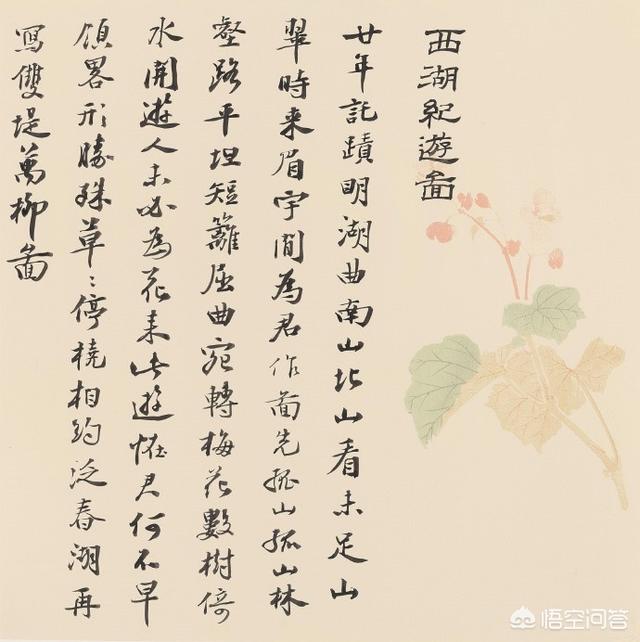 西湖紀遊啚
廿年託蹟明湖曲南山北山看未足山
翠時来眉宇間為君作啚先孤山孤山林
壑路平坦短籬屈曲宛轉梅花數樹倚
水開遊人未必為花来此遊恠君何不早
領畧形勝殊草〻停橈相約泛春湖再
寫雙堤萬柳啚
悟空问答